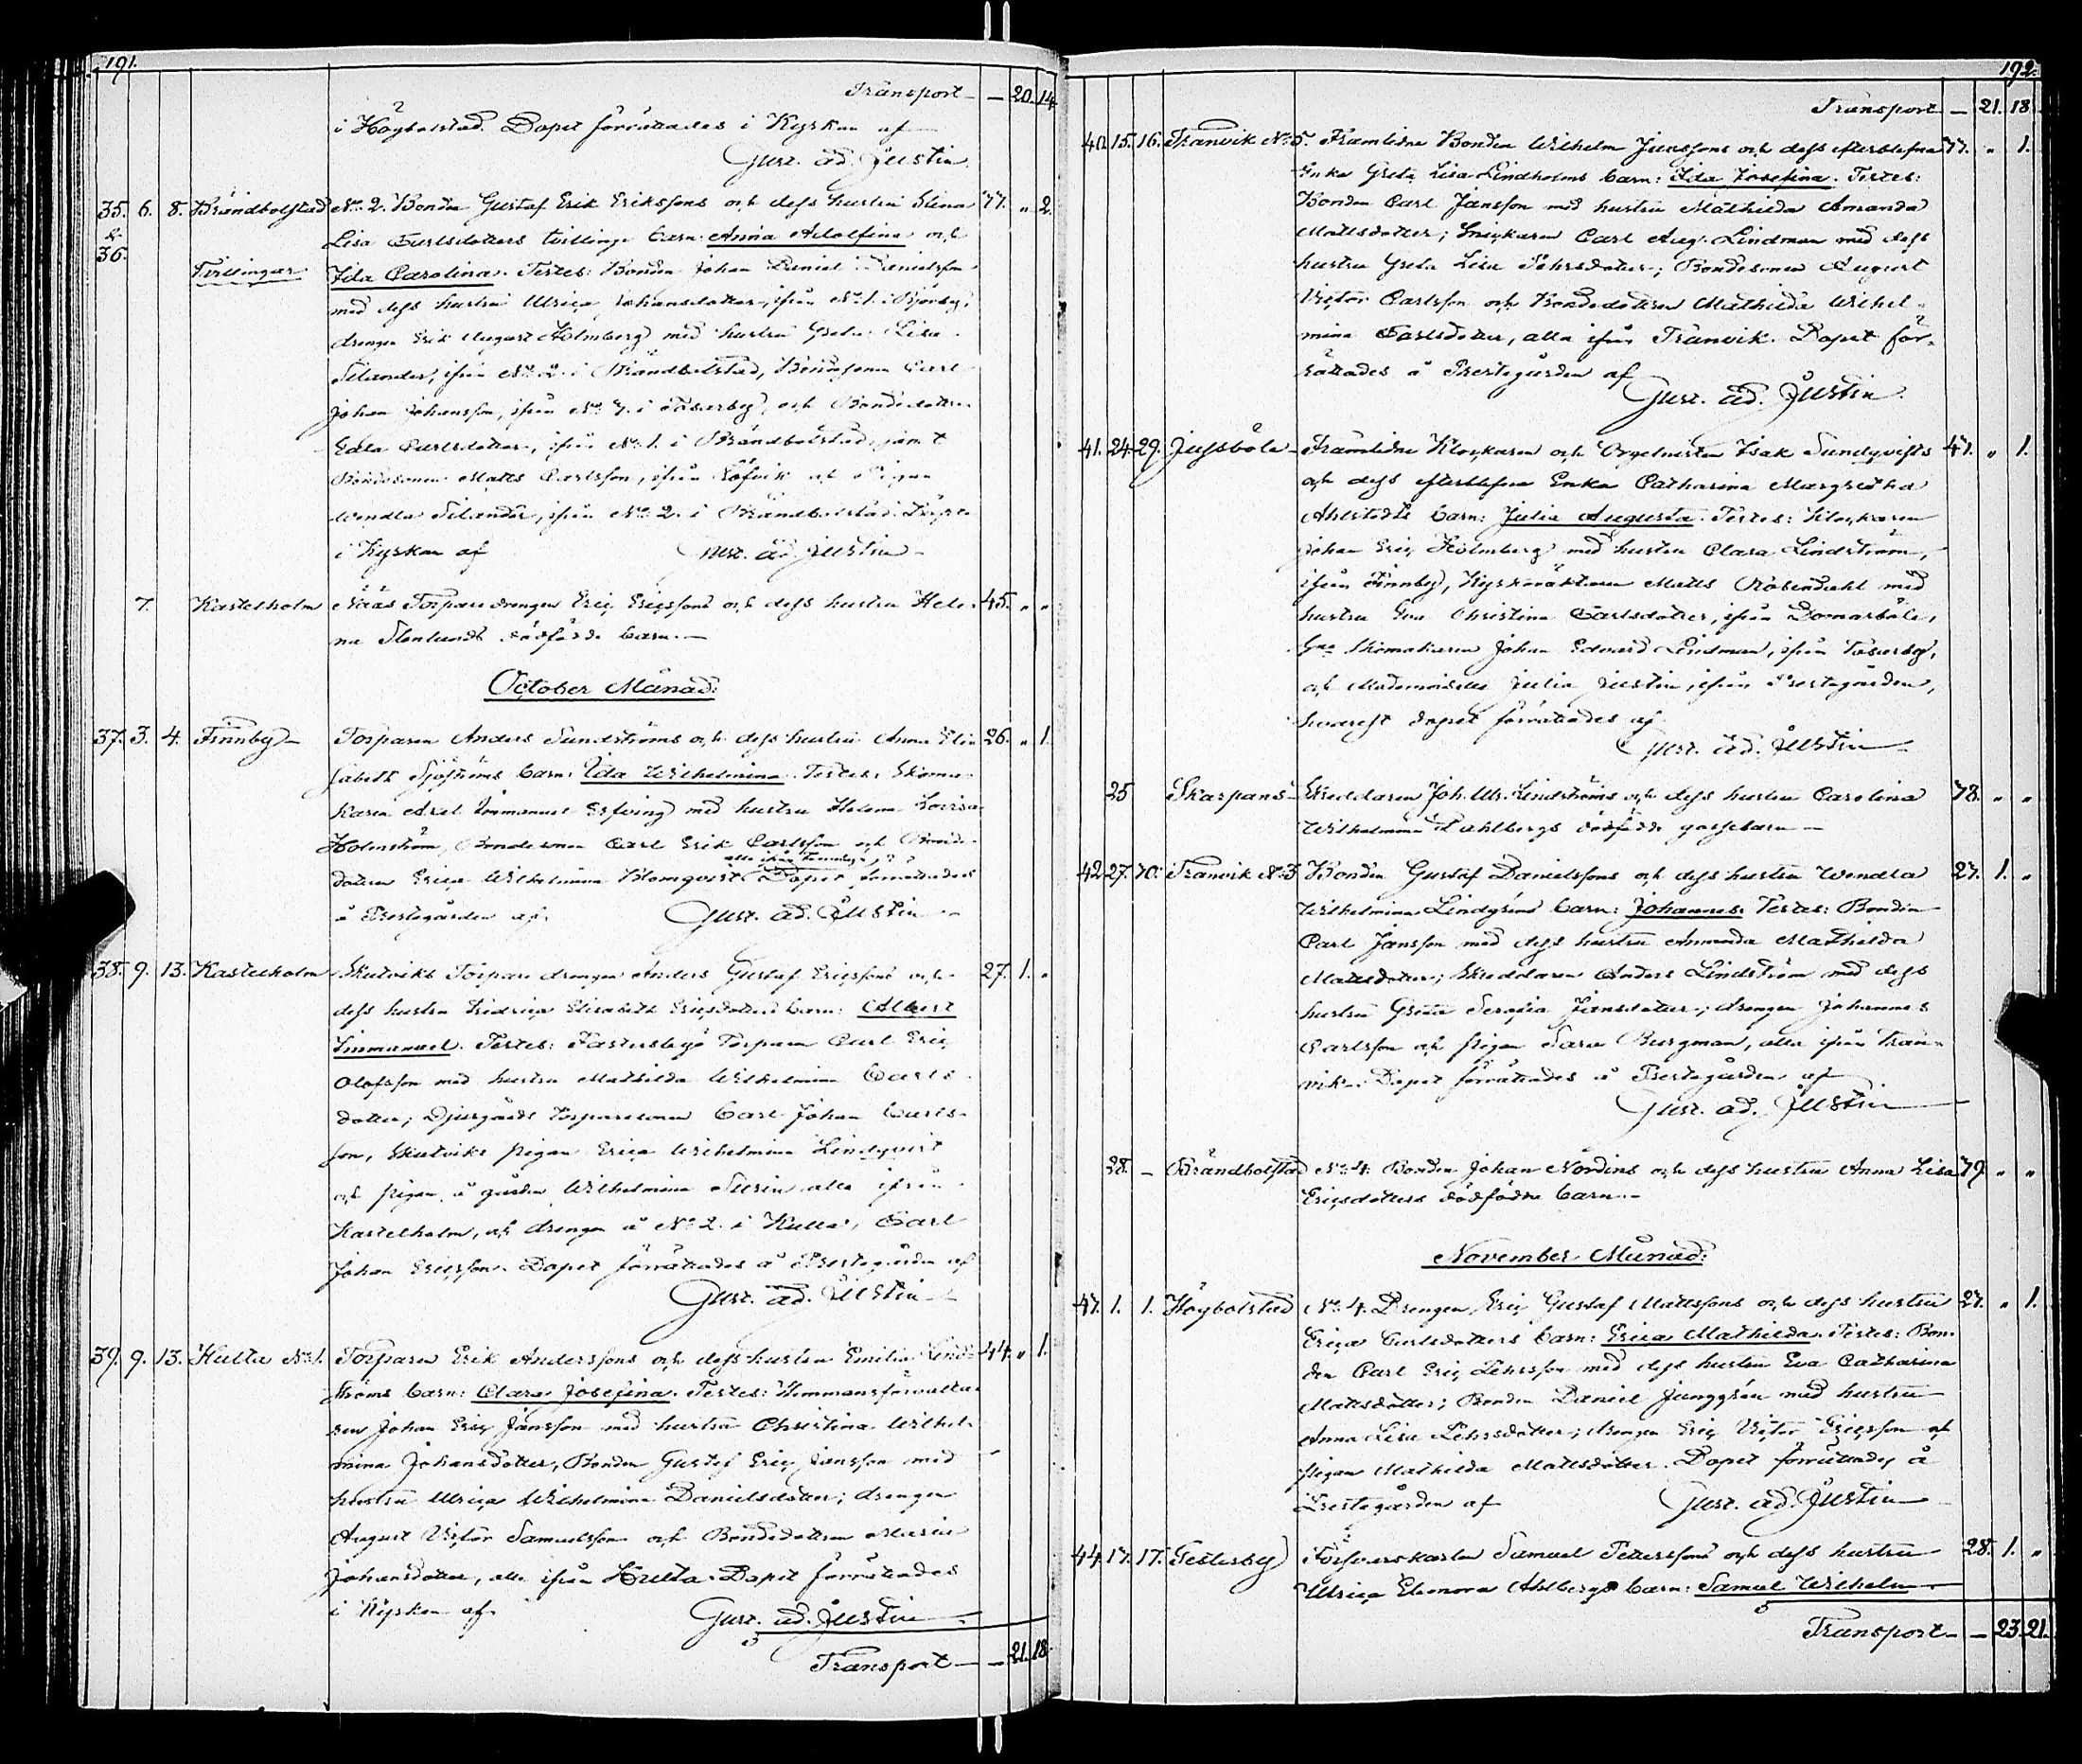 191.
Transport — — 20. 14.
i Högbolstad. Dopet förrättades i Kyrkan af
Gust. Ad. Justin.
35. 6. 8. Brändbolstad No 2. Bonden Gustaf Erik Erikssons och dess hustru Stina 77. „ 2.
&
36.
Lisa Carlsdotters tvillinge barn: Anna Adolfina och
Tvillingar
Ida Carolina. Testes: Bonden Johan Daniel Danielsson
med dess hustru Ulrica Johansdotter, ifrån No 1. i Björby,
drengen Erik August Holmberg med hustru Greta Lisa
Silander, ifrån No 2. i Brändbolstad, Bondsonen Carl
Johan Johansson, ifrån No 7. i Tosarby, och Bondedottren
Edla Carlsdotter, ifrån No 1. i Brändbolstad, jemt
Bondesonen Matts Carlsson, ifrån Löfvik och Pigan
Wendla Silander, ifrån No 2. i Brändbolstad. Döpte
i Kyrkan af Gust. Ad. Justin
7. Kastelholm Nääs Torpare drengen Eric Ericssons och dess hustru Hele- 45. „ „
na Stenlunds dödfödde barn. —
October Månad:
37. 3. 4. Finnby — Torparen Anders Sundströms och dess hustru Anna Eli- 26. „ 1.
sabeth Sjöströms barn: Ida Wilhelmina. Testes: Skoma-
karen Axel Immanuel Erfving med hustru Helena Lovisa
Holmström, Bondesonen Carl Erik Carlsson och Bonde-
alla ifrån Finnby
dottren Erica Wilhelmina Blomqvist. Dopet förrättades
å Prestegården af Gust. Ad. Justin
38. 9. 13. Kastelholm Skutviks Torpare drengen Anders Gustaf Ericssons och 27. 1. „
dess hustru Fredrica Elisabeth Ericsdotters barn: Albert
Immanuel. Testes: Torparen Carl Eric
Olofsson med hustru Mathilda Wilhelmina Carls-
dotter; Djurgårds Torparesonen Carl Johan Carls-
son, Skutviks pigan Erica Wilhelmina Lindqvist
och pigan å gården Wilhelmina alla ifrån
Kastelholm, och drengen å No 2. i Hulta, Carl
Johan Ericsson. Dopet förrättades å Prestegården af
Gust. Ad. Justin
39. 9. 13. Hulta No 1. Torparen Erik Anderssons och dess hustru Emilia Lind- 44. „ 1.
ströms barn: Clara Josefina. Testes: Hemmansförvalta-
ren Johan Eric Jansson med hustru Christina Wilhel-
mina Johansdotter, Bonden Gustaf Eric Jansson med
hustru Ulrica Wilhelmina Danielsdotter; drengen
August Victor Samuelsson och Bondedottren Maria
Johansdotter, alla ifrån Hulta. Dopet förrättades
i Kyrkan af Gust. Ad. Justin
Transport — — 21. 18.
192.
Transport — — 21. 18.
40. 15. 16. Tranvik No 5. Framlidne Bonden Wilhelm Janssons och dess efterblefna 77. „ 1.
Enka Greta Lisa Lindholms barn: Ida Josefina. Testes:
Bonden Carl Jansson med hustru Mathilda Amanda
Mattsdotter; Snickaren Carl Aug. Lindman med dess
hustru Greta Lisa Pehrsdotter; Bondesonen August
Victor Carlsson och Bondedottren Mathilda Wilhel-
mina Carlsdotter, alla ifrån Tranvik. Dopet för-
rättades å Prestegården af
Gust. Ad. Justin.
41. 24. 29. Jussböle — Framlidne Klockaren och Orgelnisten Isak Sundqvists 41. „ 1.
och dess efterblefna Enka Catharina Margretha
Ahlstedts barn: Julia Augusta. Testes: Klockaren
Johan Eric Holmberg med hustru Clara Lindström,
ifrån Finnby, Kyrkovaktaren Matts Rosendahl med
hustru Eva Christina Carlsdotter, ifrån Domarböle,
Skomakaren Johan Edvard Lindman, ifrån Tosarby,
och Mademoiselle Julia Justin, ifrån Prestegården,
hvarest dopet förrättades af
Gust. Ad. Justin
25 Skarpans — Skreddaren Joh. Ulr. Lindströms och dess hustru Carolina 78. „ „
Wilhelmina Dahlbergs dödfödde gossebarn —
42. 27. 30. Tranvik No 3 Bonden Gustaf Danielssons och dess hustru Wendla 27. 1. „
Wilhelmina Lindgréns barn: Johannes. Testes: Bonden
Carl Jansson med dess hustru Amanda Mathilda
Mattsdotter; Skreddaren Anders Lindström med dess
hustru Greta Serafia Jansdotter; drengen Johannes
Carlsson och pigan Sara Bergman, alla ifrån Tran-
vik. Dopet förrättades å Prestegården af
Gust. Ad. Justin
28. — Brändbolstad No 4. Bonden Johan Nordins och dess hustru Anna Lisa 79. „ „
Ericsdotters dödfödde barn. —
November Månad:
43. 1. 1. Högbolstad No 4. Drengen Eric Gustaf Mattssons och dess hustru 27. „ 1.
Erica Carlsdotters barn: Erica Mathilda. Testes: Bon-
den Carl Eric Pehrsson med dess hustru Eva Catharina
Mattsdotter; Bonden Daniel Junggrén med hustru
Anna Lisa Pehrsdotter; drengen Eric Victor Ericsson och
pigan Mathilda Mattsdotter. Dopet förrättades å
Prestegården af Gust. Ad. Justin
44. 17. 17. Gesterby Försvarskarlen Samuel Petterssons och dess hustru 28. 1. „
Ulrica Eleonora Ahlbergs barn: Samuel Wilhelm
Transport — — 23. 21.